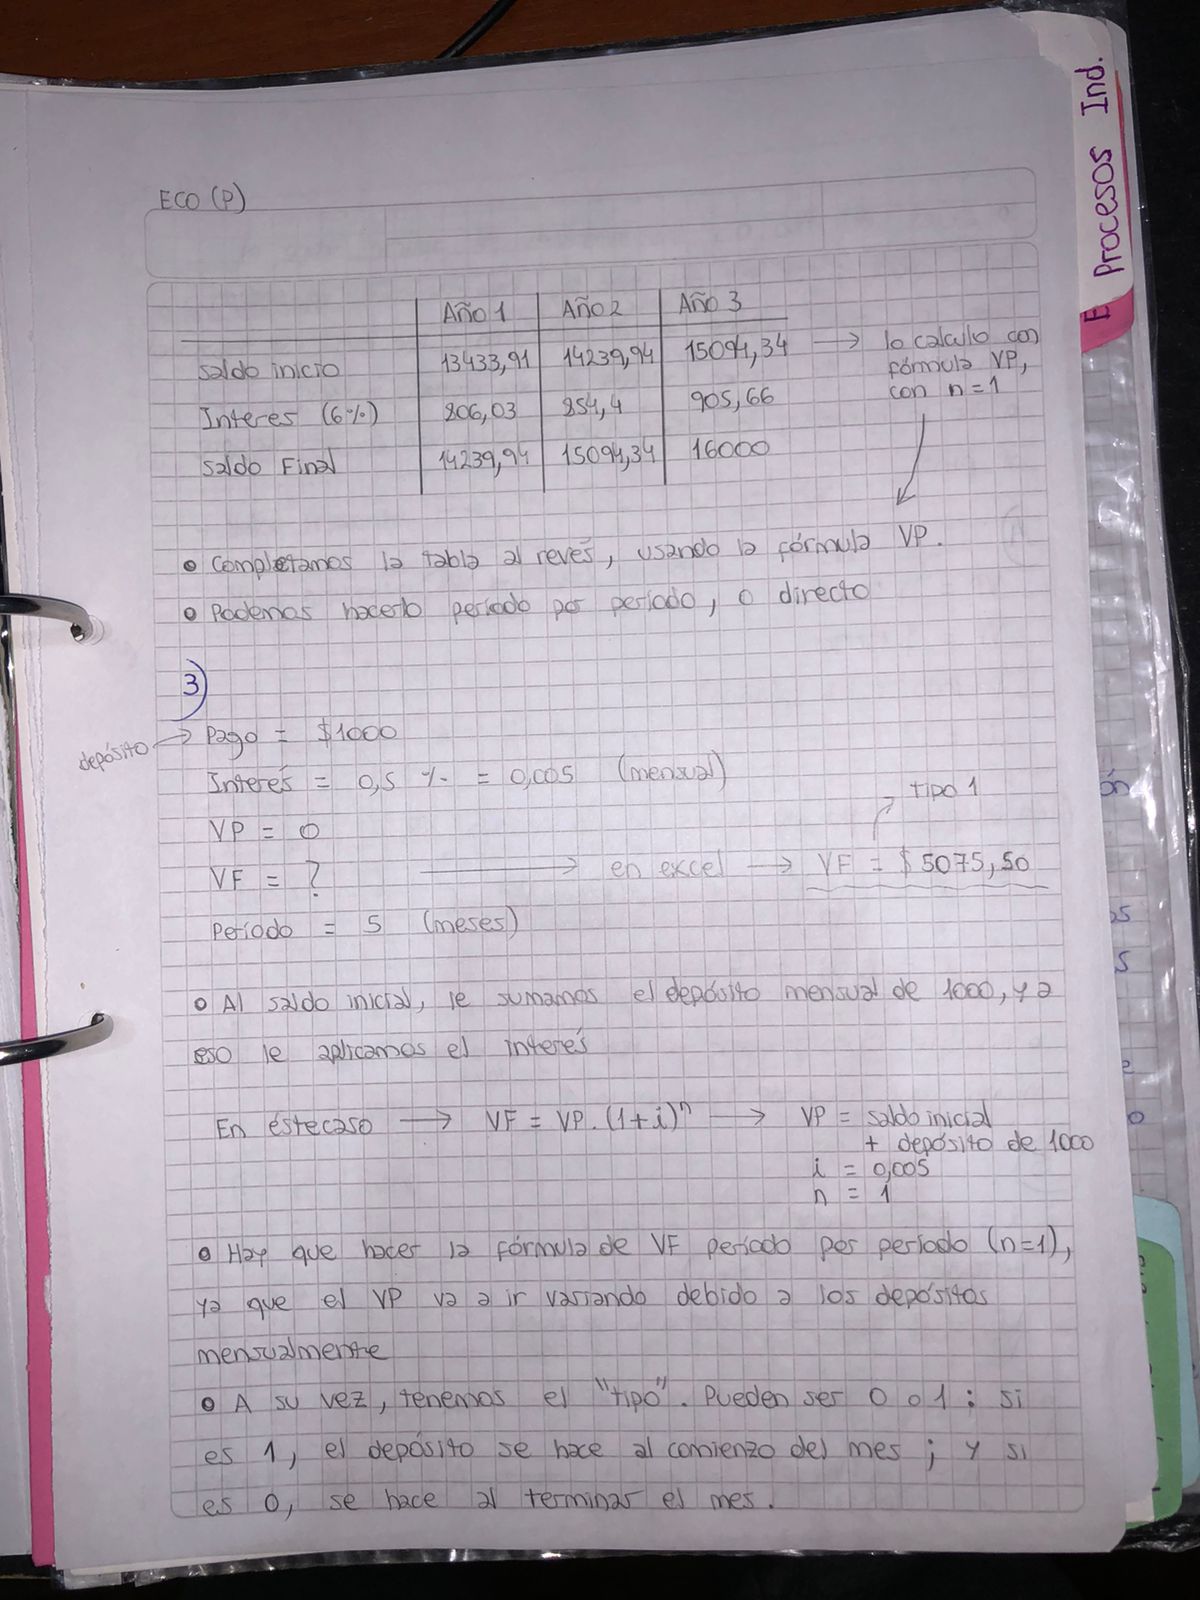 Procesos Ind.
ECO (P)
Año 1 Año 2 Año 3
saldo inicio 13433,91 14239,94 15094,34 → lo calculo con
fórmula VP,
con n=1
Interes (6%) 806,03 854,4 905,66
saldo Final 14239,94 15094,34 16000
• Completamos la tabla al revés, usando la fórmula VP.
• Podemos hacerlo período por período, o directo
3)
depósito → Pago = $1000
Interés = 0,5 % = 0,005 (mensual)
tipo 1
VP = 0
VF = ? → en excel → VF = $5075,50
Período = 5 (meses)
• Al saldo inicial, le sumamos el depósito mensual de 1000, y a
eso le aplicamos el interés
En éste caso → VF = VP. (1+i)ⁿ → VP = saldo inicial
+ depósito de 1000
i = 0,005
n = 1
• Hay que hacer la fórmula de VF período por período (n=1),
ya que el VP va a ir variando debido a los depósitos
mensualmente
• A su vez, tenemos el "tipo". Pueden ser 0 o 1: si
es 1, el depósito se hace al comienzo del mes; y si
es 0, se hace al terminar el mes.